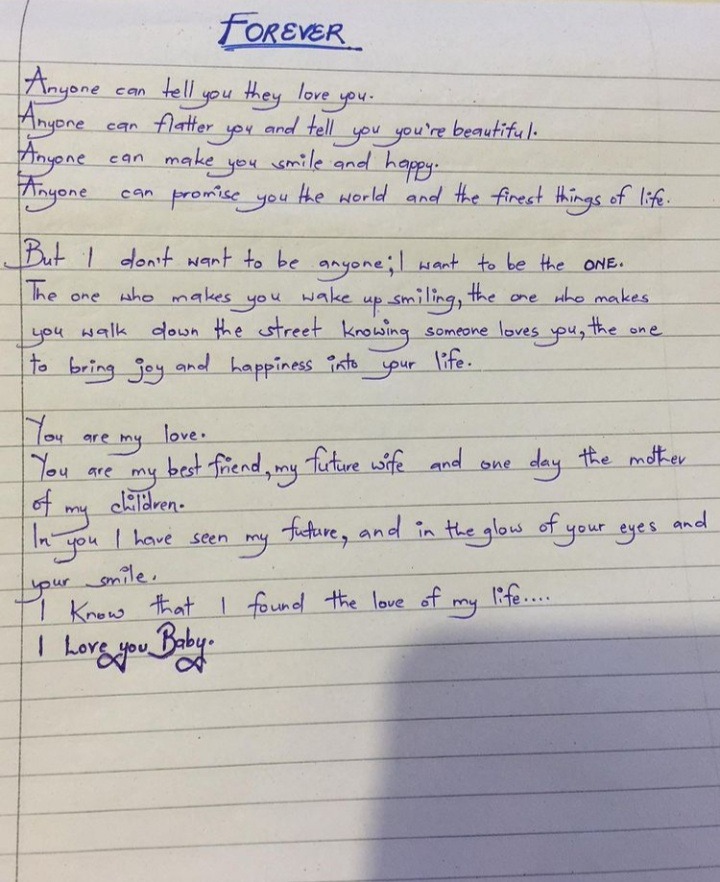 FOREVER
Anyone can tell you they love you.
Anyone can flatter you and tell you you're beautiful.
Anyone can make you smile and happy.
Anyone can promise you the world and the finest things of life.
But I don't want to be anyone; I want to be the ONE.
The one who makes you wake up smiling, the one who makes
you walk down the street knowing someone loves you, the one
to bring joy and happiness into your life.
You are my love.
You are my best friend, my future wife and one day the mother
of my children.
In you I have seen my future, and in the glow of your eyes and
your smile.
I know that I found the love of my life....
I Love you Baby.